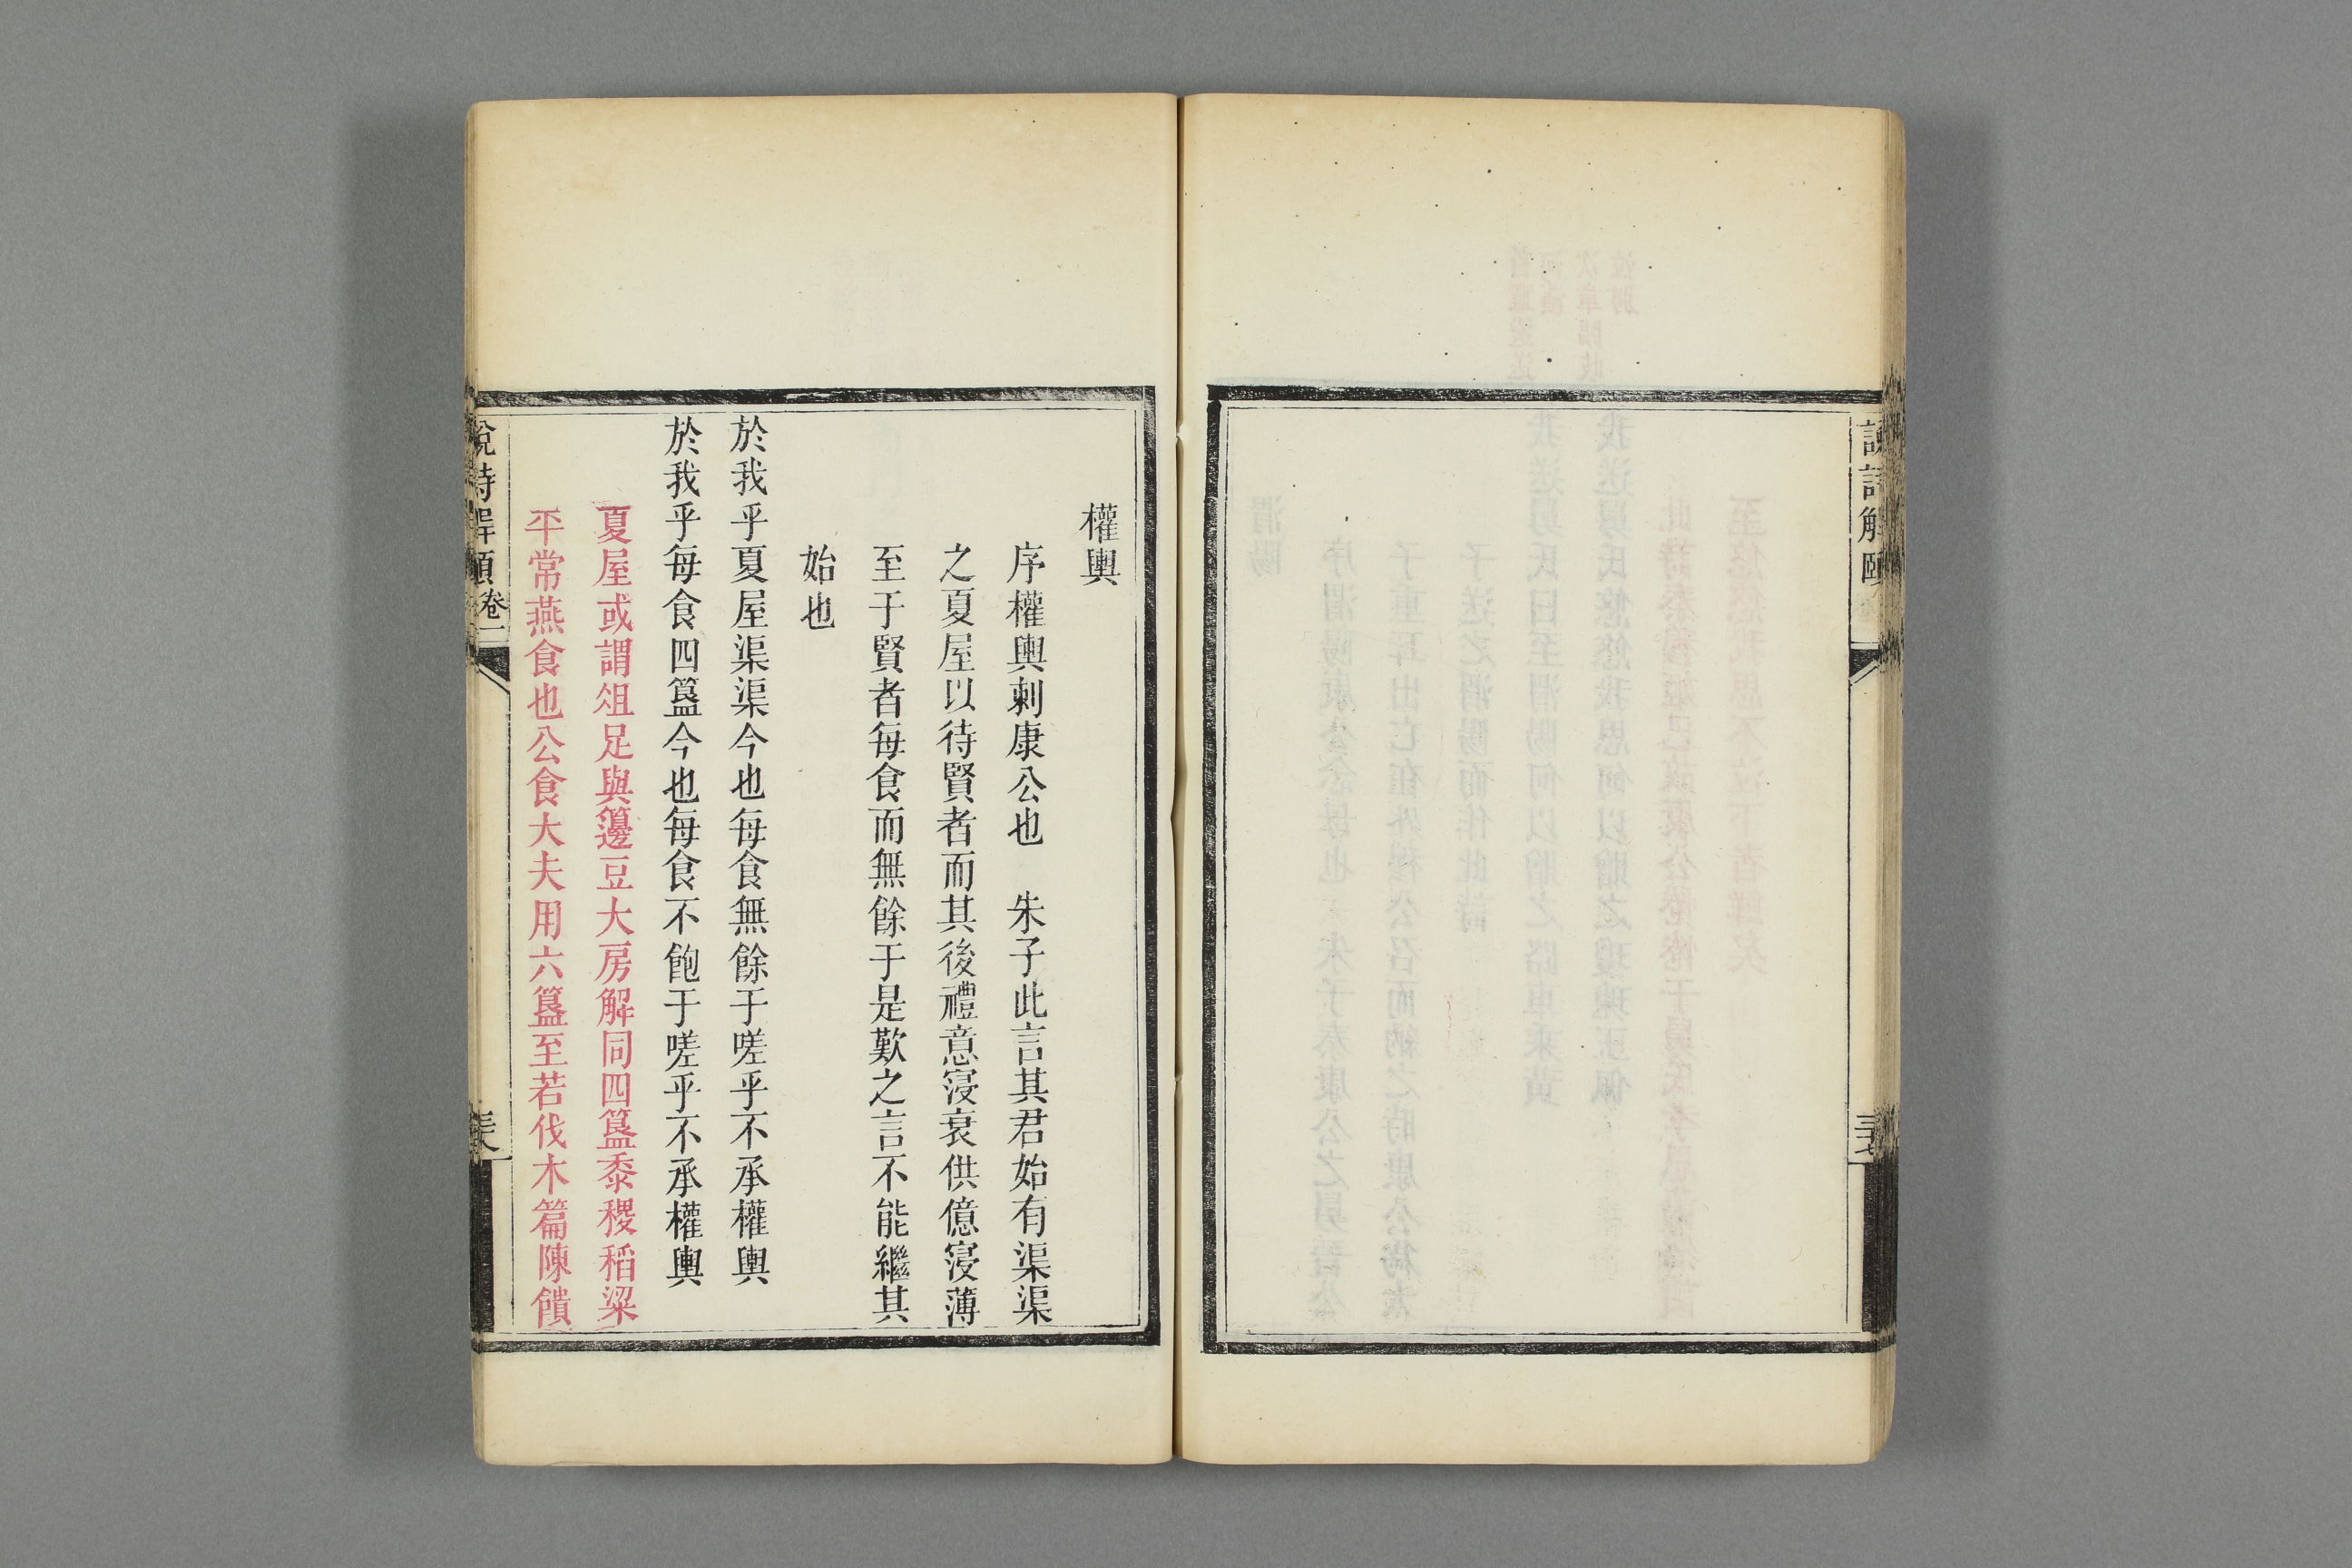 說詩解頤
三十七
權輿
序權輿刺康公也　朱子此言其君始有渠渠
之夏屋以待賢者而其後禮意寖衰供億寖薄
至于賢者每食而無餘于是歎之言不能繼其
始也
於我乎夏屋渠渠今也每食無餘于嗟乎不承權輿
於我乎每食四簋今也每食不飽于嗟乎不承權輿
夏屋或謂俎足與籩豆大房解同四簋黍稷稻粱
平常燕食也公食大夫用六簋至若伐木篇陳饋
說詩解頤卷一
三十八